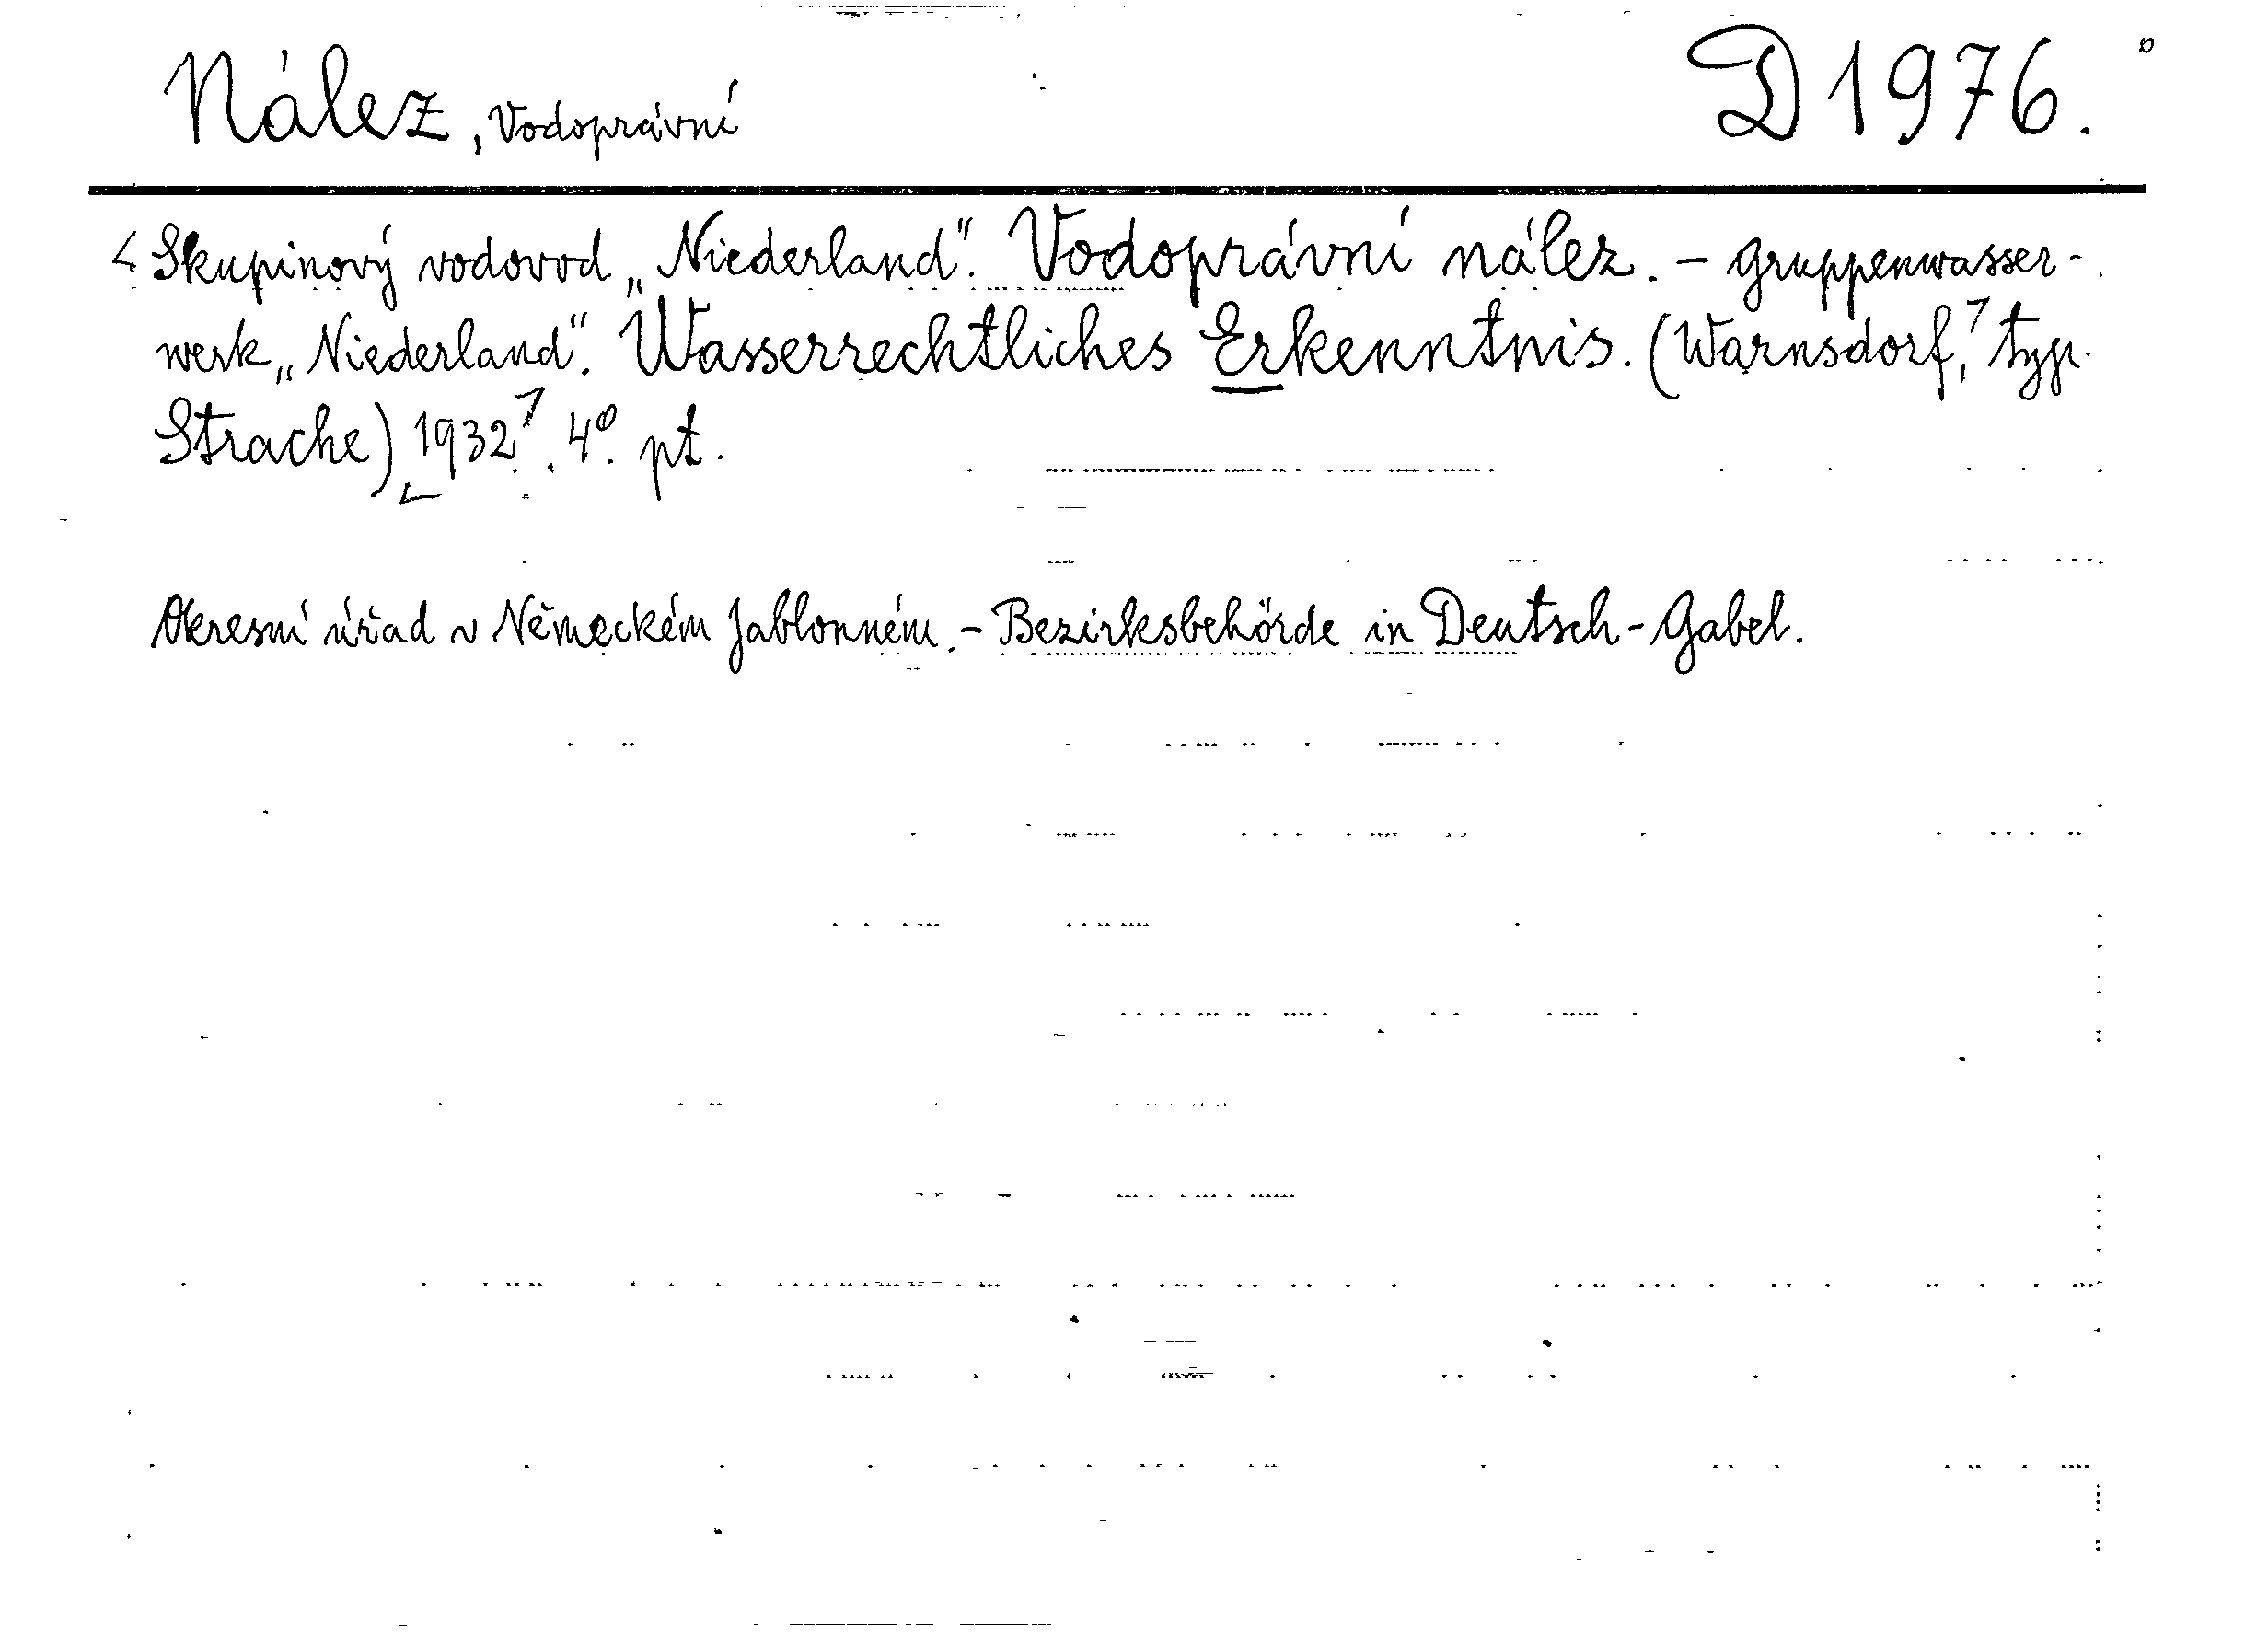 Nález, Vodoprávní D 1976.
Skupinový vodovod „Niederland“. Vodoprávní nález. – Gruppenwasser-
werk „Niederland“. Wasserrechtliches Erkenntnis. (Warnsdorf, typ.
Strache) 1932. 4°. pt.
Okresní úřad v Německém Jablonném. – Bezirksbehörde in Deutsch-Gabel.